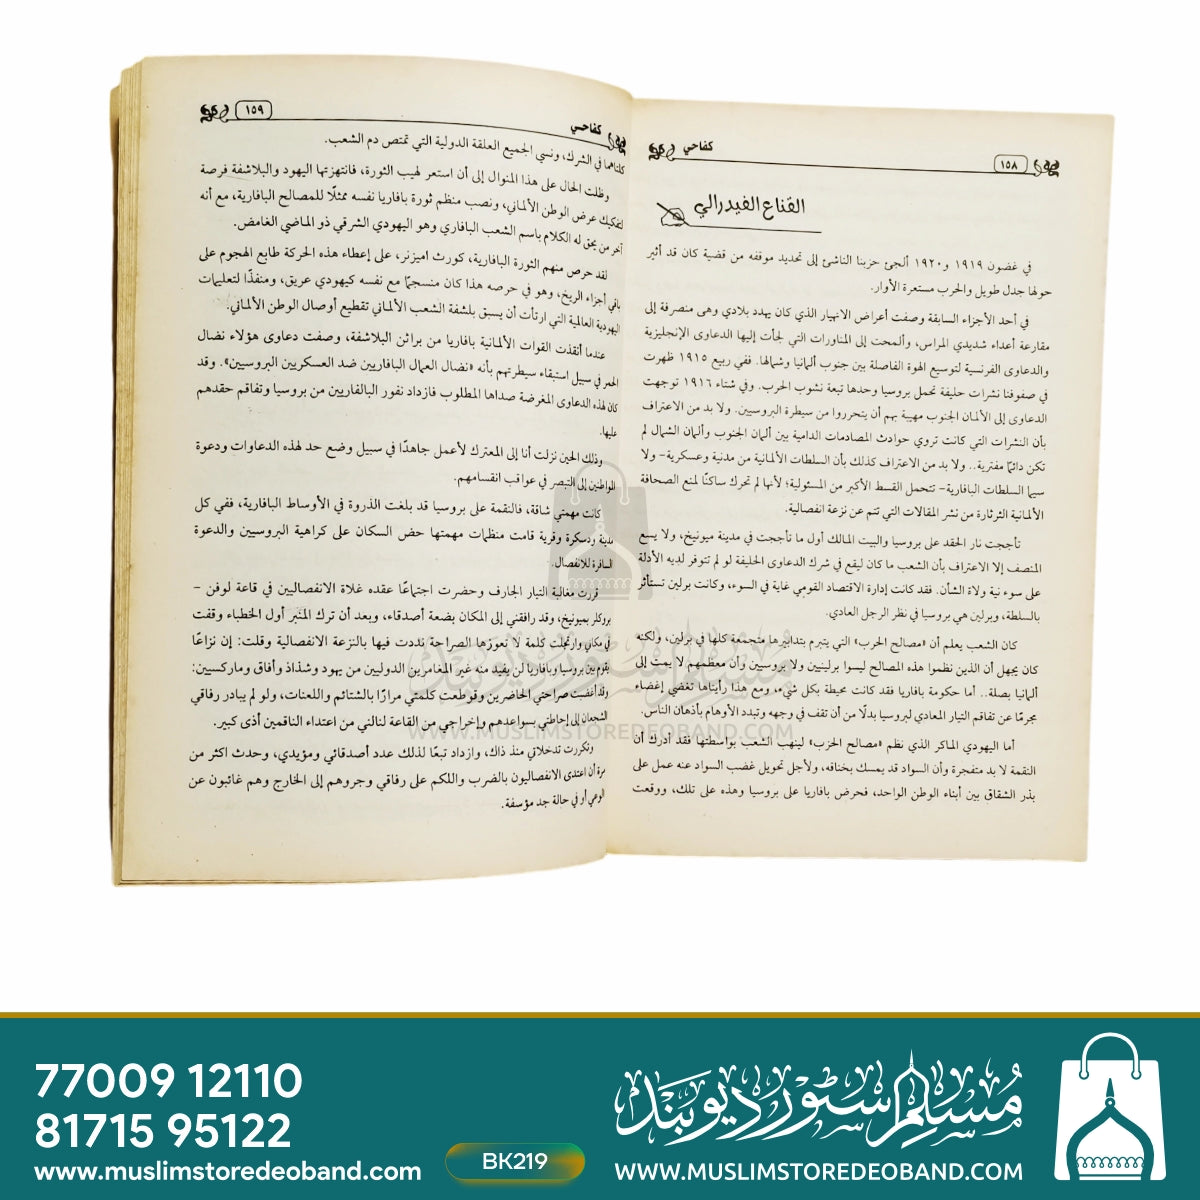 كفاحي
١٥٨
القناع الفيدرالي
في غضون ١٩١٩ و١٩٢٠ ألجئ حزبنا الناشئ إلى تحديد موقفه من قضية كان قد أثير
حولها جدل طويل والحرب مستعرة الأوار.
في أحد الأجزاء السابقة وصفت أعراض الانهيار الذي كان يهدد بلادي وهى منصرفة إلى
مقارعة أعداء شديدي المراس، وألمحت إلى المناورات التي لجأت إليها الدعاوى الإنجليزية
والدعاوى الفرنسية لتوسيع الهوة الفاصلة بين جنوب ألمانيا وشمالها. ففي ربيع ١٩١٥ ظهرت
في صفوفنا نشرات حليفة تحمل بروسيا وحدها تبعة نشوب الحرب. وفي شتاء ١٩١٦ توجهت
الدعاوى إلى الألمان الجنوب مهيبة بهم أن يتحرروا من سيطرة البروسيين. ولا بد من الاعتراف
بأن النشرات التي كانت تروي حوادث المصادمات الدامية بين ألمان الجنوب وألمان الشمال لم
تكن دائمًا مفترية.. ولا بد من الاعتراف كذلك بأن السلطات الألمانية من مدنية وعسكرية- ولا
سيما السلطات البافارية- تتحمل القسط الأكبر من المسئولية؛ لأنها لم تحرك ساكنًا لمنع الصحافة
الألمانية الثرثارة من نشر المقالات التي تنم عن نزعة انفصالية.
تأججت نار الحقد على بروسيا والبيت المالك أول ما تأججت في مدينة ميونيخ، ولا يسع
المنصف إلا الاعتراف بأن الشعب ما كان ليقع في شرك الدعاوى الحليفة لو لم تتوفر لديه الأدلة
على سوء نية ولاة الشأن. فقد كانت إدارة الاقتصاد القومي غاية في السوء، وكانت برلين تستأثر
بالسلطة، وبرلين هي بروسيا في نظر الرجل العادي.
كان الشعب يعلم أن «مصالح الحرب» التي يتبرم بتدابيرها متجمعة كلها في برلين، ولكنه
كان يجهل أن الذين نظموا هذه المصالح ليسوا برلينيين ولا بروسيين وأن معظمهم لا يمت إلى
ألمانيا بصلة.. أما حكومة بافاريا فقد كانت محيطة بكل شيء، ومع هذا رأيناها تغضي إغضاء
مجرمًا عن تفاقم التيار المعادي لبروسيا بدلًا من أن تقف في وجهه وتبدد الأوهام بأذهان الناس.
أما اليهودي الماكر الذي نظم «مصالح الحزب» لينهب الشعب بواسطتها فقد أدرك أن
النقمة لا بد متفجرة وأن السواد قد يمسك بخناقه، ولأجل تحويل غضب السواد عنه عمل على
بذر الشقاق بين أبناء الوطن الواحد، فحرض بافاريا على بروسيا وهذه على تلك، ووقعت
كفاحي
١٥٩
كلتاهما في الشرك، ونسي الجميع العلقة الدولية التي تمتص دم الشعب.
وظلت الحال على هذا المنوال إلى أن استعر لهيب الثورة، فانتهزتها اليهود والبلاشفة فرصة
لتفكيك عرض الوطن الألماني، ونصب منظم ثورة بافاريا نفسه ممثلًا للمصالح البافارية، مع أنه
آخر من يحق له الكلام باسم الشعب البافاري وهو اليهودي الشرقي ذو الماضي الغامض.
لقد حرص منهم الثورة البافارية، كورث اميزنر، على إعطاء هذه الحركة طابع الهجوم على
باقي أجزاء الريخ، وهو في حرصه هذا كان منسجمًا مع نفسه كيهودي عريق، ومنفذًا لتعليمات
اليهودية العالمية التي ارتأت أن يسبق بلشفة الشعب الألماني تقطيع أوصال الوطن الألماني.
عندما أنقذت القوات الألمانية بافاريا من براثن البلاشفة، وصفت دعاوى هؤلاء نضال
الحمر في سبيل استبقاء سيطرتهم بأنه «نضال العمال البافاريين ضد العسكريين البروسيين». وقد
كان لهذه الدعاوى المغرضة صداها المطلوب فازداد نفور البالفاريين من بروسيا وتفاقم حقدهم
عليها.
وذلك الحين نزلت أنا إلى المعترك لأعمل جاهدًا في سبيل وضع حد لهذه الدعاوات ودعوة
المواطنين إلى التبصر في عواقب انقسامهم.
كانت مهمتي شاقة، فالنقمة على بروسيا قد بلغت الذروة في الأوساط البافارية، ففي كل
مدينة ودسكرة وقرية قامت منظمات مهمتها حض السكان على كراهية البروسيين والدعوة
السافرة للانفصال.
قررت مغالبة التيار الجارف وحضرت اجتماعًا عقده غلاة الانفصاليين في قاعة لوفن –
بروكلر بميونيخ، وقد رافقني إلى المكان بضعة أصدقاء، وبعد أن ترك المنبر أول الخطباء وقفت
في مكاني وارتجلت كلمة لا تعوزها الصراحة نددت فيها بالنزعة الانفصالية وقلت: إن نزاعًا
يقوم بين بروسيا وبافاريا لن يفيد منه غير المغامرين الدوليين من يهود وشذاذ وأفاق وماركسيين:
وقد أغضبت صراحتي الحاضرين وقوطعت كلمتي مرارًا بالشتائم واللعنات، ولو لم يبادر رفاقي
الشجعان إلى إحاطتي بسواعدهم وإخراجي من القاعة لنالني من اعتداء الناقمين أذى كبير.
وتكررت تدخلاتي منذ ذاك، وازداد تبعًا لذلك عدد أصدقائي ومؤيدي، وحدث اكثر من
مرة أن اعتدى الانفصاليون بالضرب واللكم على رفاقي وجروهم إلى الخارج وهم غائبون عن
الوعي أو في حالة جد مؤسفة.
مسلم سٹور دیوبند
WWW.MUSLIMSTOREDEOBAND.COM
77009 12110
81715 95122
www.muslimstoredeoband.com
BK219
مسلم سٹور دیوبند
WWW.MUSLIMSTOREDEOBAND.COM